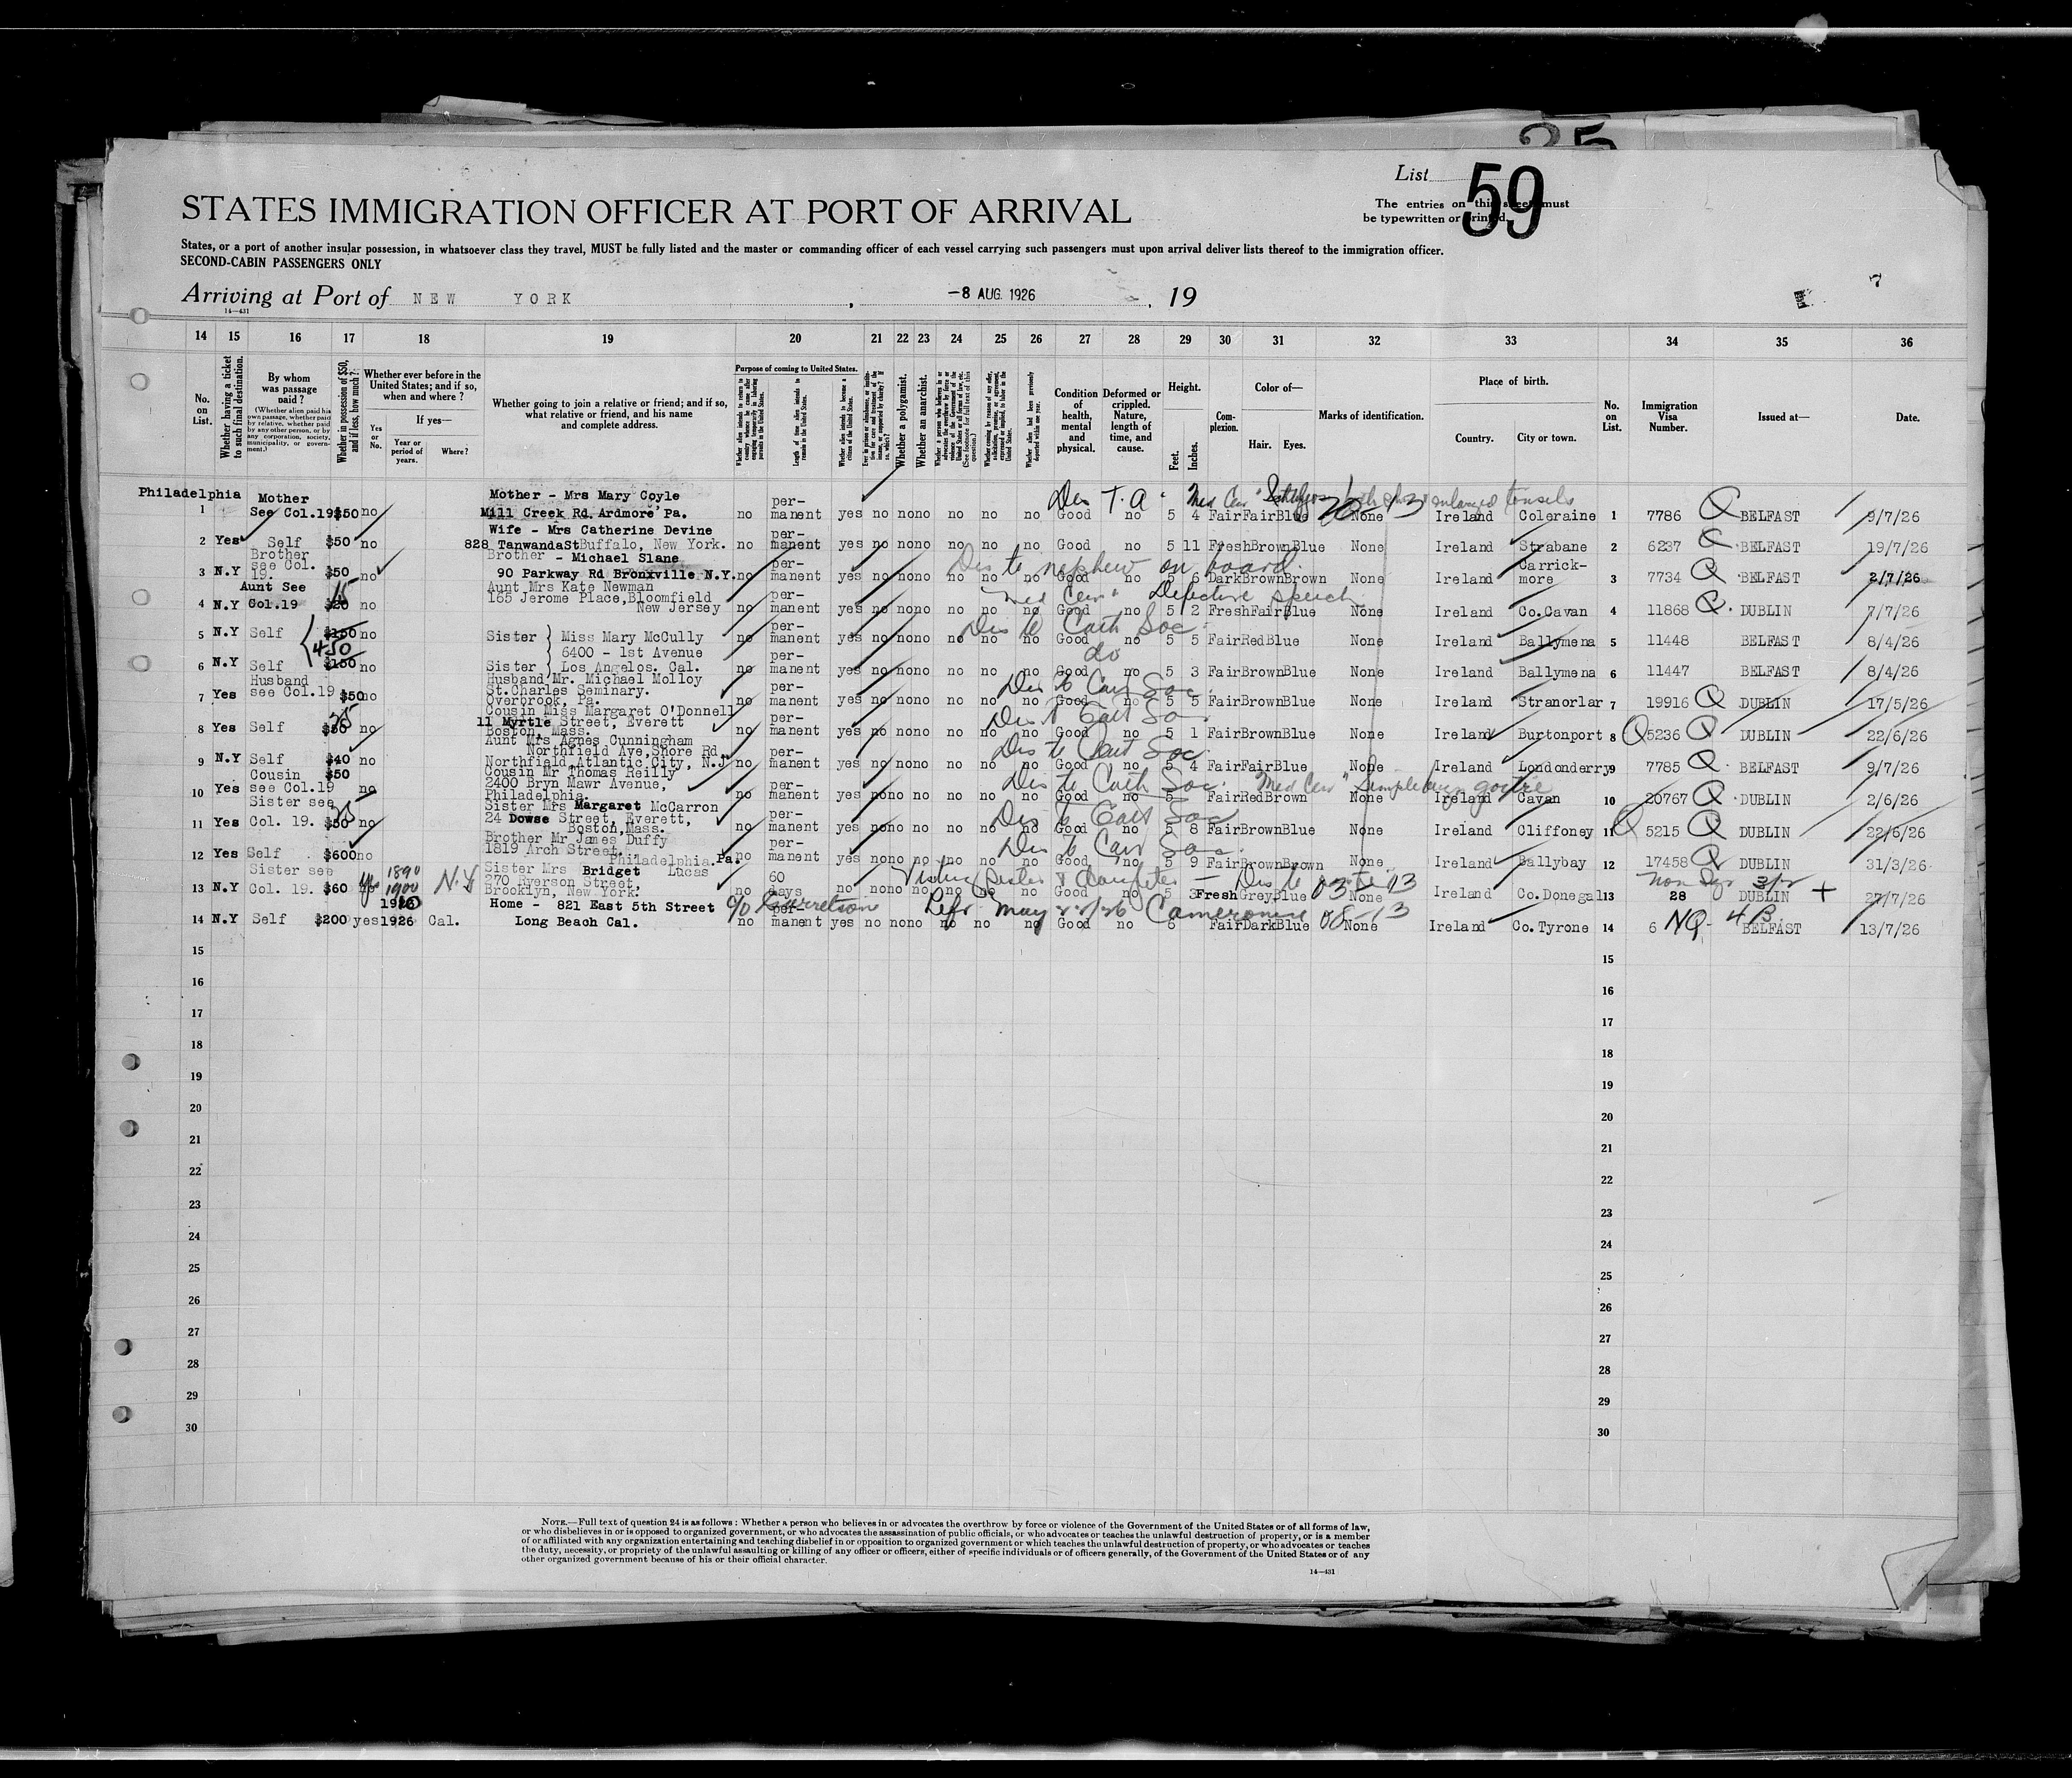 35
List
59
The entries on this sheet must
be typewritten or printed.
STATES IMMIGRATION OFFICER AT PORT OF ARRIVAL
States, or a port of another insular possession, in whatsoever class they travel, MUST be fully listed and the master or commanding officer of each vessel carrying such passengers must upon arrival deliver lists thereof to the immigration officer.
SECOND-CABIN PASSENGERS ONLY
Arriving at Port of NEW YORK , -8 AUG. 1926 , 19
14—431
14 15 16 17 18 19 20 21 22 23 24 25 26 27 28 29 30 31 32 33 34 35 36
No. on List.
Whether having a ticket to such final destination.
By whom was passage paid?
(Whether alien paid his own passage, whether paid by relative, whether paid by any other person, or by any corporation, society, municipality, or government.)
Whether in possession of $50, and if less, how much?
Whether ever before in the United States; and if so, when and where?
If yes—
Yes or No.
Year or period of years.
Where?
Whether going to join a relative or friend; and if so, what relative or friend, and his name and complete address.
Purpose of coming to United States.
Length of time alien intends to remain in the United States.
Whether alien intends to become a citizen of the United States.
Whether a polygamist.
Whether an anarchist.
Condition of health, mental and physical.
Deformed or crippled. Nature, length of time, and cause.
Height.
Feet. Inches.
Complexion.
Color of—
Hair. Eyes.
Marks of identification.
Place of birth.
Country. City or town.
No. on List.
Immigration Visa Number.
Issued at—
Date.
Philadelphia Mother Mother - Mrs Mary Coyle per- Des T.A. Med Cer enlarged tonsils
1 See Col.19 $50 no Mill Creek Rd. Ardmore Pa. no manent yes no no no no no no Good no 5 4 Fair Fair Blue None Ireland Coleraine 1 7786 Q BELFAST 9/7/26
Wife - Mrs Catherine Devine per-
2 Yes Self $50 no 828 TanwandaSt Buffalo, New York. no manent yes no no no no no no Good no 5 11 Fresh Brown Blue None Ireland Strabane 2 6237 Q BELFAST 19/7/26
Brother see Col. 19. Brother - Michael Slane per- Des to nephew on board. Carrick-
3 N.Y $50 no 90 Parkway Rd Bronxville N.Y. no manent yes no no no no no no Good no 5 6 Dark Brown Brown None Ireland more 3 7734 Q BELFAST 2/7/26
Aunt See 15 Aunt Mrs Kate Newman 165 Jerome Place,Bloomfield per- Med Cer Defective speech
4 N.Y Col.19 $20 no New Jersey no manent yes no no no no no no Good no 5 2 Fresh Fair Blue None Ireland Co.Cavan 4 11868 Q DUBLIN 7/7/26
per- Des to Cath Soc
5 N.Y Self $150 no Sister Miss Mary McCully no manent yes no no no no no no Good no 5 5 Fair Red Blue None Ireland Ballymena 5 11448 BELFAST 8/4/26
450 6400 - 1st Avenue per- do
6 N.Y Self $150 no Sister Los Angelos. Cal. no manent yes no no no no no no Good no 5 3 Fair Brown Blue None Ireland Ballymena 6 11447 BELFAST 8/4/26
Husband Husband Mr. Michael Molloy St.Charles Seminary. per- Des to Cath Soc.
7 Yes see Col.19 $50 no Overbrook, Pa. no manent yes no no no no no no Good no 5 5 Fair Brown Blue None Ireland Stranorlar 7 19916 Q DUBLIN 17/5/26
Cousin Miss Margaret O'Donnell 11 Myrtle Street, Everett per- Des to Cath Soc
8 Yes Self $50 no Boston, Mass. no manent yes no no no no no no Good no 5 1 Fair Brown Blue None Ireland Burtonport 8 Q 5236 Q DUBLIN 22/6/26
Aunt Mrs Agnes Cunningham Northfield Ave,Shore Rd. per- Des to Cath Soc
9 N.Y Self $40 no Northfield,Atlantic City, N.J no manent yes no no no no no no Good no 5 4 Fair Fair Blue None Ireland Londonderry 9 7785 Q BELFAST 9/7/26
Cousin $50 Cousin Mr Thomas Reilly 2400 Bryn Mawr Avenue, per- Des to Cath Soc. Med Cer Simple goitre
10 Yes see Col.19 no Philadelphia. no manent yes no no no no no no Good no 5 Fair Red Brown None Ireland Cavan 10 20767 Q DUBLIN 2/6/26
Sister see Sister Mrs Margaret McCarron 24 Dowse Street, Everett, per- Des to Cath Soc
11 Yes Col. 19. $50 no Boston,Mass. no manent yes no no no no no no Good no 5 8 Fair Brown Blue None Ireland Cliffoney 11 Q 5215 Q DUBLIN 22/6/26
Brother Mr James Duffy 1819 Arch Street. per- Des to Cath Soc.
12 Yes Self $600 no Philadelphia.Pa. no manent yes no no no no no no Good no 5 9 Fair Brown Brown None Ireland Ballybay 12 17458 Q DUBLIN 31/3/26
Sister see Yes 1890 1900 N.Y Sister Mrs Bridget Lucas 270 Ryerson Street, 60 Visiting Sister & daughter — Des to 03 13 non 3/2 +
13 N.Y Col. 19. $60 Brooklyn, New York. no days no no no no no no no Good no 5 3 Fresh Grey Blue None Ireland Co.Donegal 13 28 DUBLIN 27/7/26
Home - 821 East 5th Street per- Refs May 22/26 Cameronia 08-13
14 N.Y Self $200 yes 1926 Cal. Long Beach Cal. no manent yes no no no no no no Good no 6 Fair Dark Blue None Ireland Co.Tyrone 14 6 NQ- 4 B. BELFAST 13/7/26
15 15
16 16
17 17
18 18
19 19
20 20
21 21
22 22
23 23
24 24
25 25
26 26
27 27
28 28
29 29
30 30
NOTE.—Full text of question 24 is as follows: Whether a person who believes in or advocates the overthrow by force or violence of the Government of the United States or of all forms of law,
or who disbelieves in or is opposed to organized government, or who advocates the assassination of public officials, or who advocates or teaches the unlawful destruction of property, or is a member
of or affiliated with any organization entertaining and teaching disbelief in or opposition to organized government or which teaches the unlawful destruction of property, or who advocates or teaches
the duty, necessity, or propriety of the unlawful assaulting or killing of any officer or officers, either of specific individuals or of officers generally, of the Government of the United States or of any
other organized government because of his or their official character.
14—431